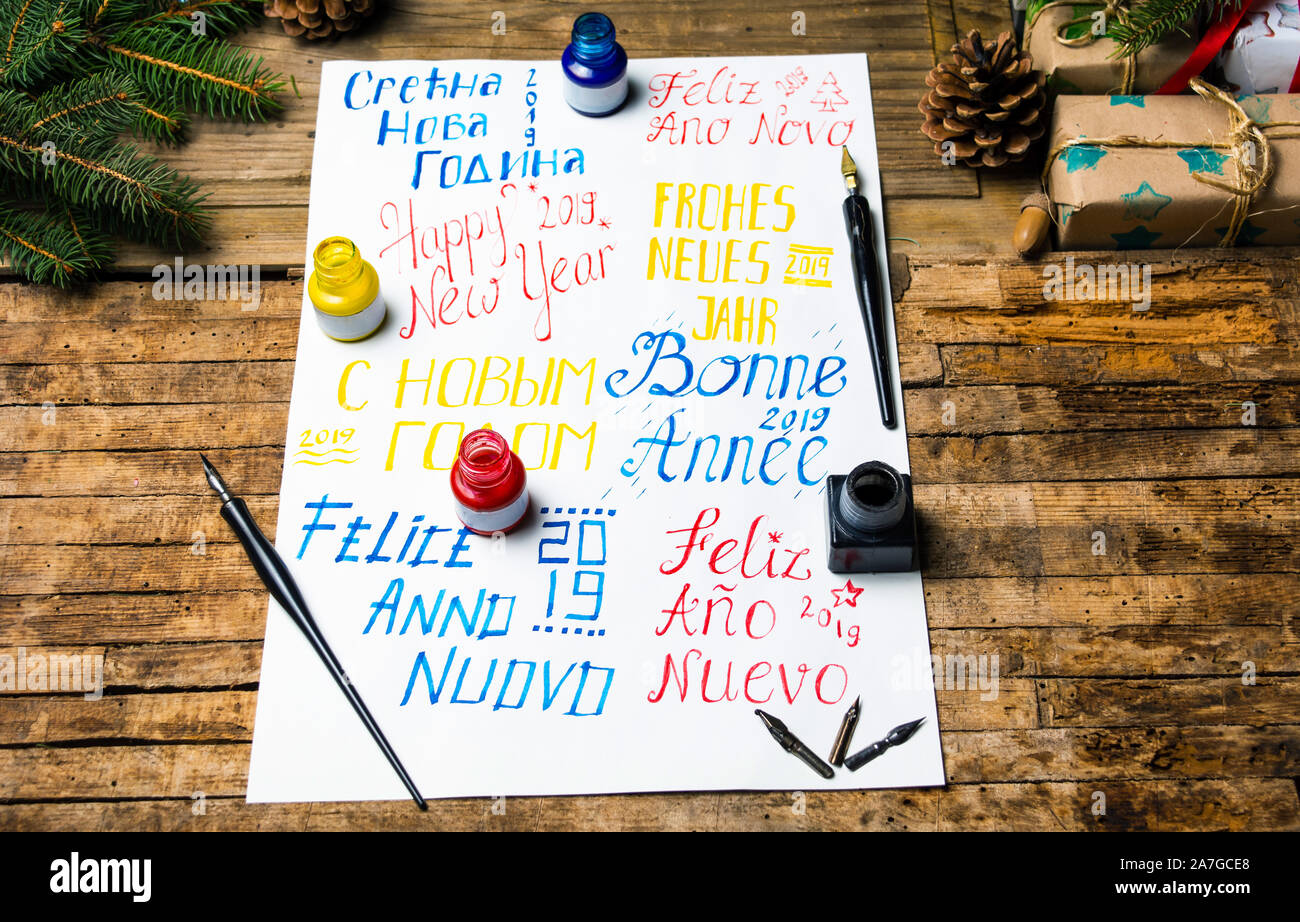 Срећна 2019
Нова
Година
Feliz 2019
Ano Novo
Happy 2019
New Year
FROHES
NEUES 2019
JAHR
С НОВЫМ
2019 ГОДОМ
Bonne
2019
Année
FELICE 20
19
ANNO
NUOVO
Feliz
Año 2019
Nuevo
alamy
Image ID: 2A7GCE8
www.alamy.com